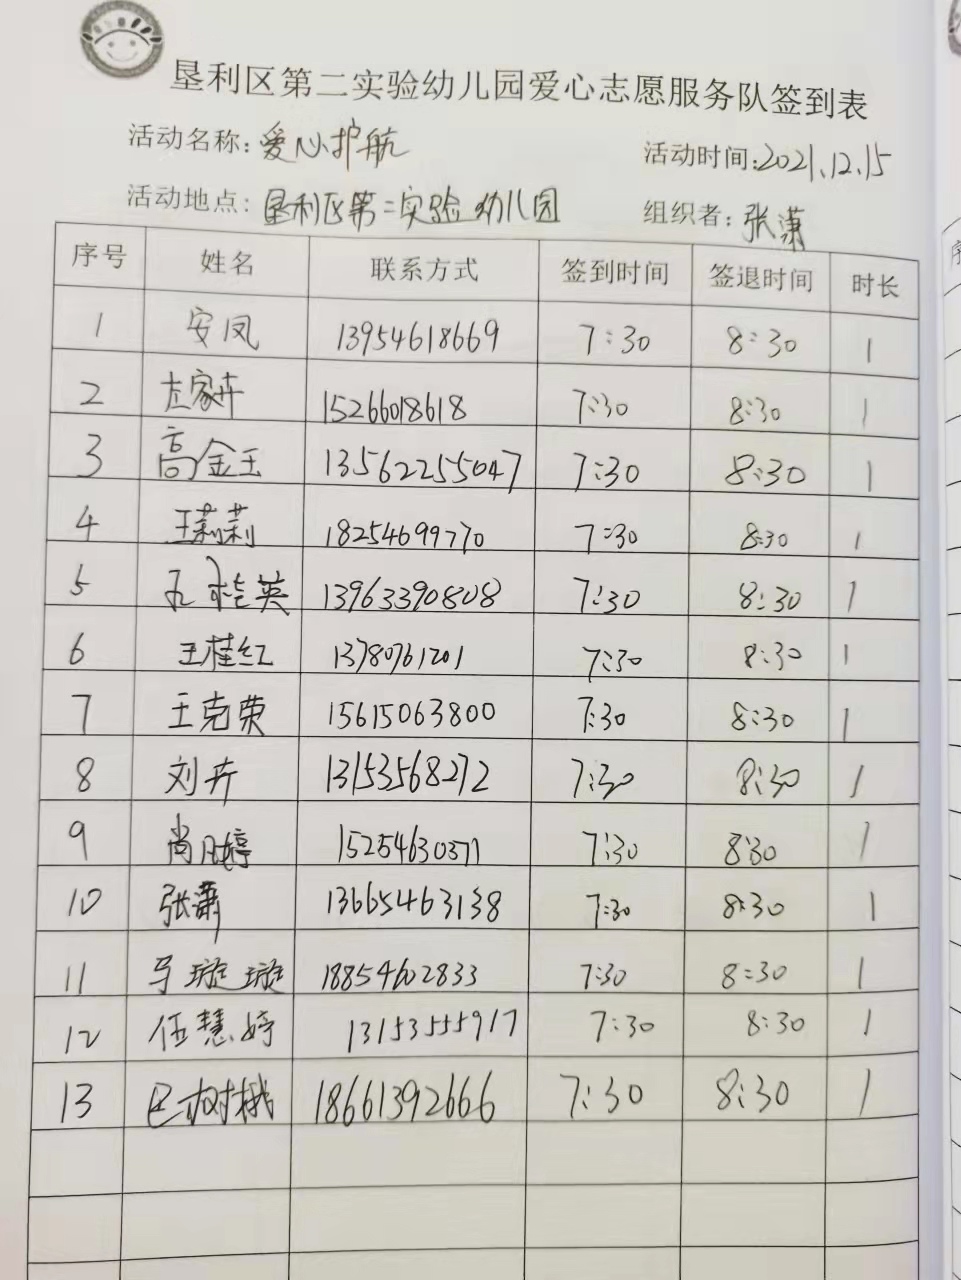 垦利区第二实验幼儿园爱心志愿服务队签到表
活动名称：爱心护航 活动时间：2021.12.15
活动地点：垦利区第二实验幼儿园 组织者：张潇
序号 姓名 联系方式 签到时间 签退时间 时长
1 安凤 13954618669 7:30 8:30 1
2 左家卉 15266018618 7:30 8:30 1
3 高金玉 13562255047 7:30 8:30 1
4 王莉莉 18254699770 7:30 8:30 1
5 孔桂英 13963390808 7:30 8:30 1
6 王桂红 13780761201 7:30 8:30 1
7 王克荣 15615063800 7:30 8:30 1
8 刘卉 13153568272 7:30 8:30 1
9 尚 婷 15254630577 7:30 8:30 1
10 张潇 13665463138 7:30 8:30 1
11 马璇璇 18854602833 7:30 8:30 1
12 伍慧婷 13153555917 7:30 8:30 1
13 巴树 18661392666 7:30 8:30 1